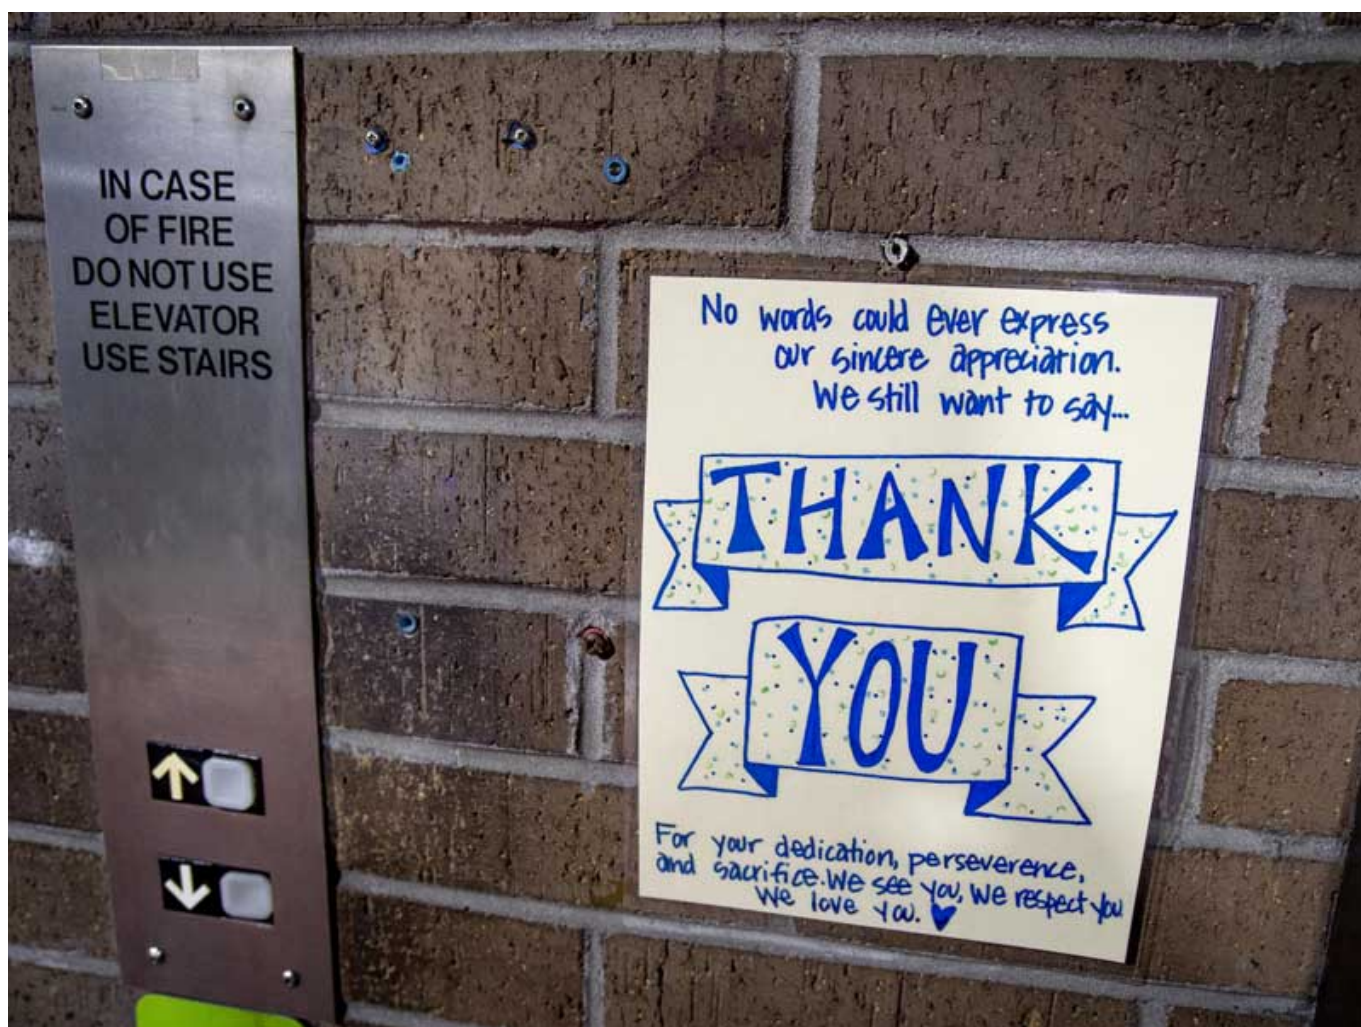 IN CASE
OF FIRE
DO NOT USE
ELEVATOR
USE STAIRS
No words could ever express
our sincere appreciation.
We still want to say...
THANK
YOU
For your dedication, perseverence,
and sacrifice. We see you, We respect you
We love you.